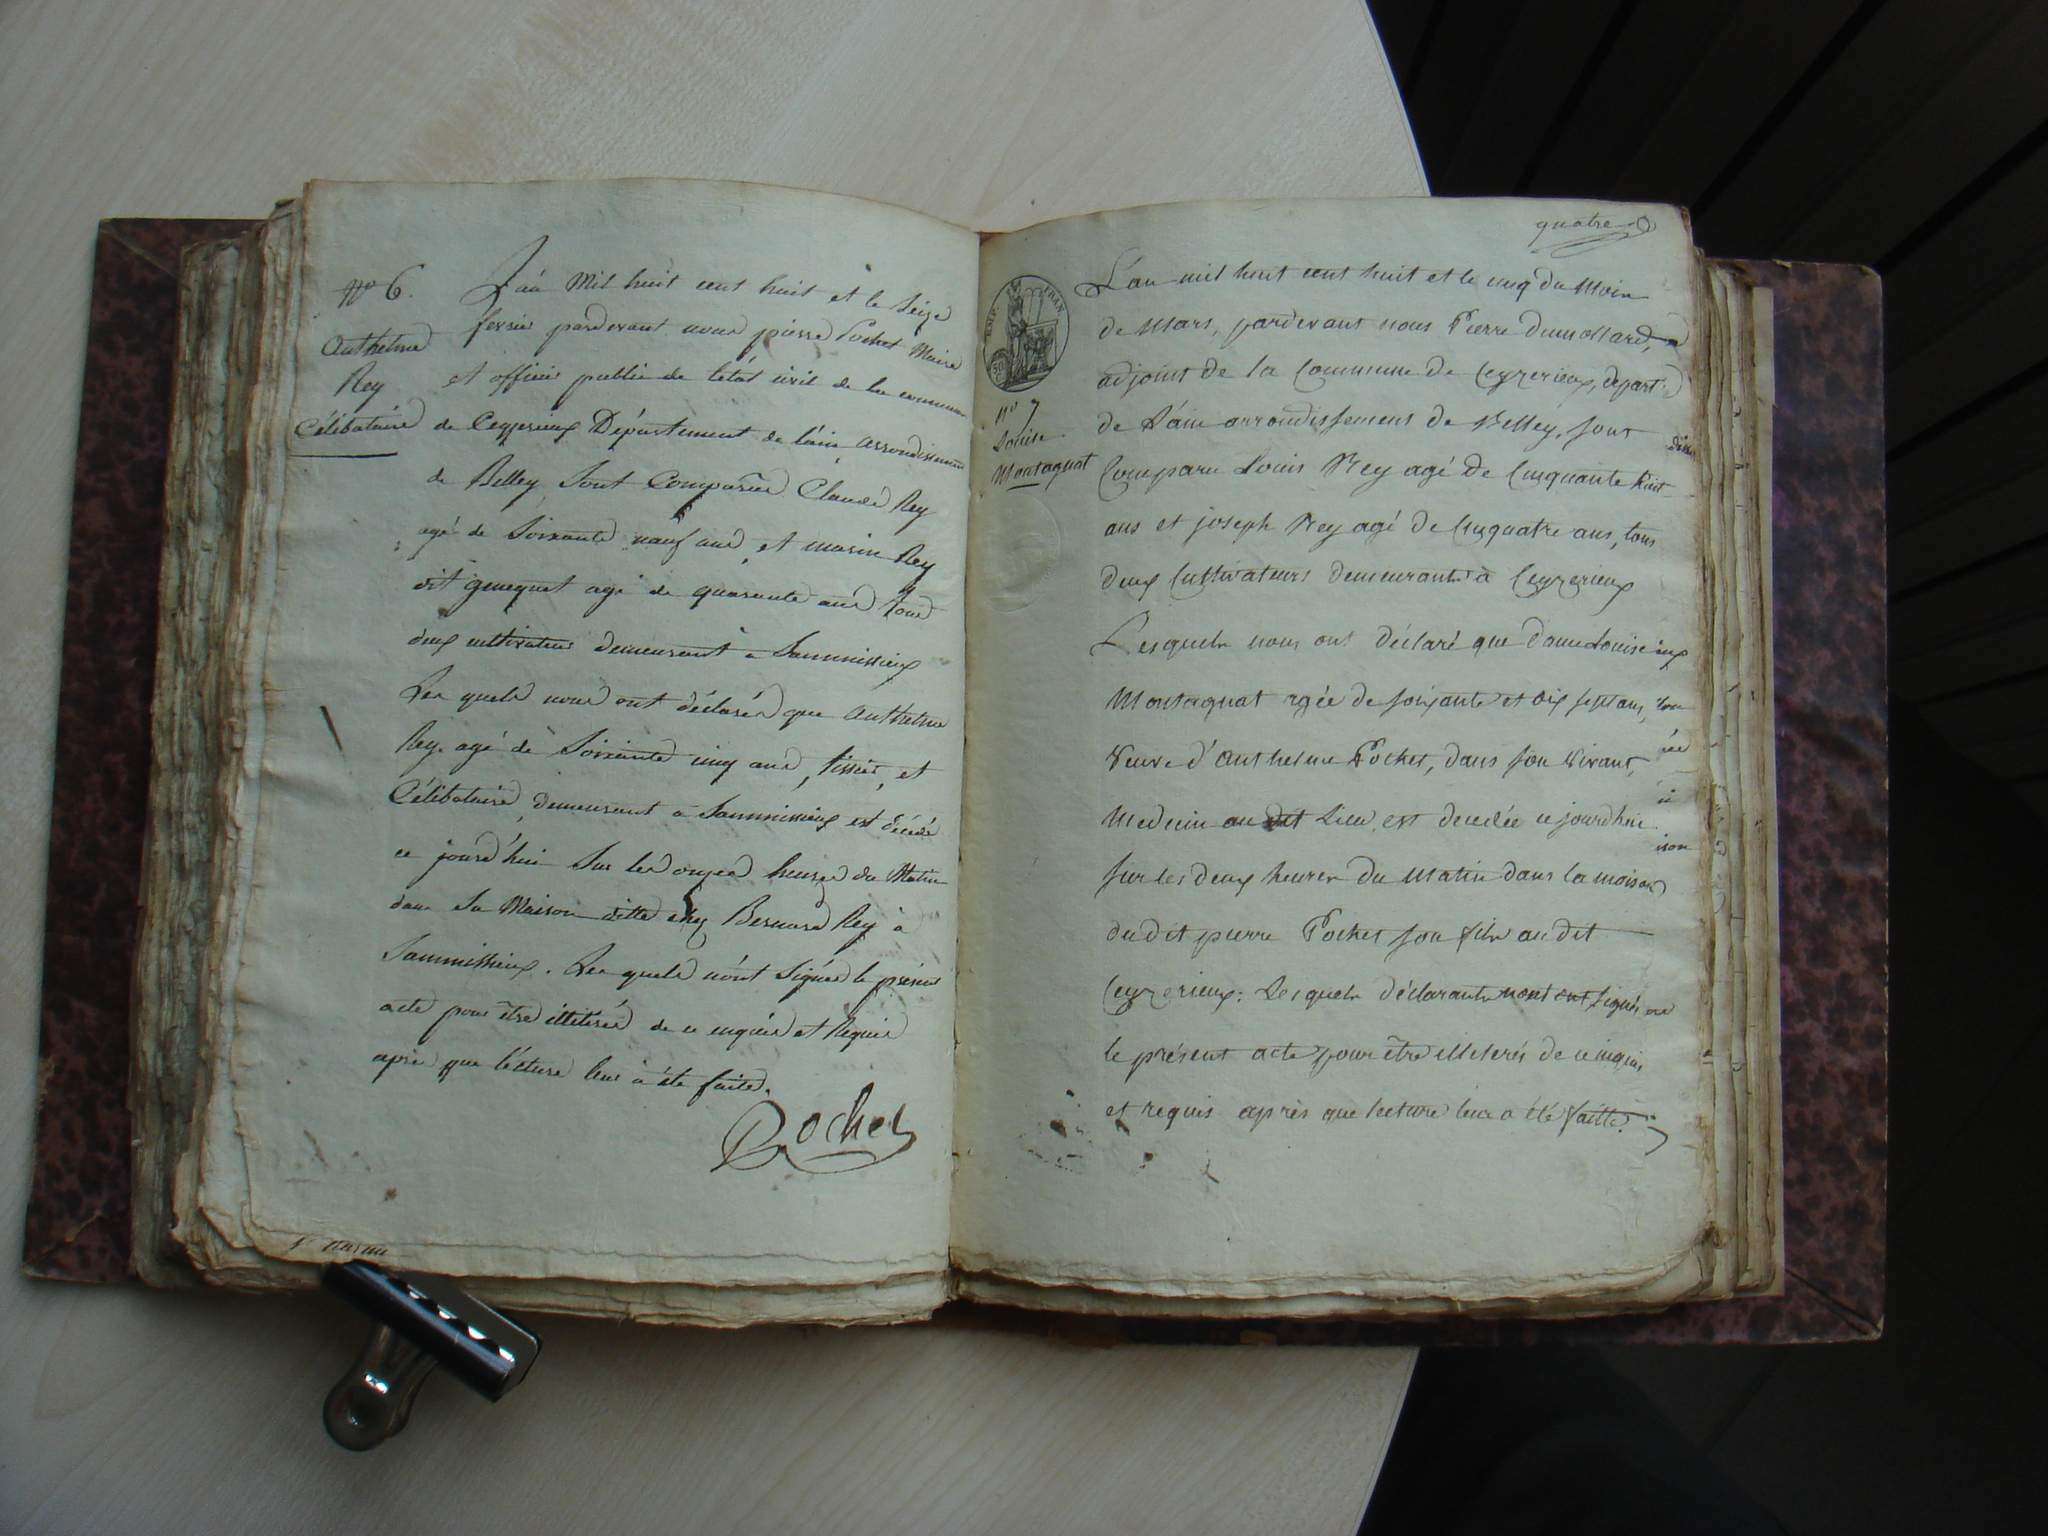 N° 6.
Anthelme
Rey
Célibataire
L'an Mil huit cent huit et le Seize
fevrier pardevant nous pierre Pochet Maire
et officier public de l'état civil de la commune
de Ceyzerieux Département de l'ain arrondissement
de Belley, Sont Comparus Claude Rey
agé de Soixante neuf ans, et marin Rey
dit genequet agé de quarente ans tous
deux cultivateur demeurant à Sammissieux
Les quels nous ont déclarés que Anthelme
Rey agé de Soixiante cinq ans, tissier, et
Célibataire, demeurant à Sammissieux est décédé
ce jourd'hui Sur les onzes heures du Matin
dans Sa Maison ditte chez Bernard Rey à
Sammissieux. Les quels n'ont Signés le présent
acte pour être illétérés de ce enquis et Requis
après que lécture leur à été faite.
Pochet
quatre
EMP. FRAN.
N° 7
Louise
Montagnat
L'an mil huit cent huit et le cinq du Mois
de Mars, pardevant nous Pierre Dumollard,
adjoint de la Commune de Ceyzerieux, depart.t
de L'ain arrondissement de Belley, sont
Comparu Louis Rey agé de Cinquante huit
ans et joseph Rey agé de Cinquatre ans, tous
deux Cultivateurs demeurants à Ceyzerieux
Lesquels nous ont déclaré que dame Louise
Montagnat agée de soixante et dix sept ans,
Veuve d'Anthelme Pochet, dans son Vivant,
Medecin au dit Lieu, est decedée ce jourdhui
sur les deux heures du Matin dans la maison
du dit pierre Pochet son fils au dit
Ceyzerieux: Lesquels déclarants nont ont signés
le présent acte pour être illeterés de ce inquis
et requis après que lecture leur a été faitte.